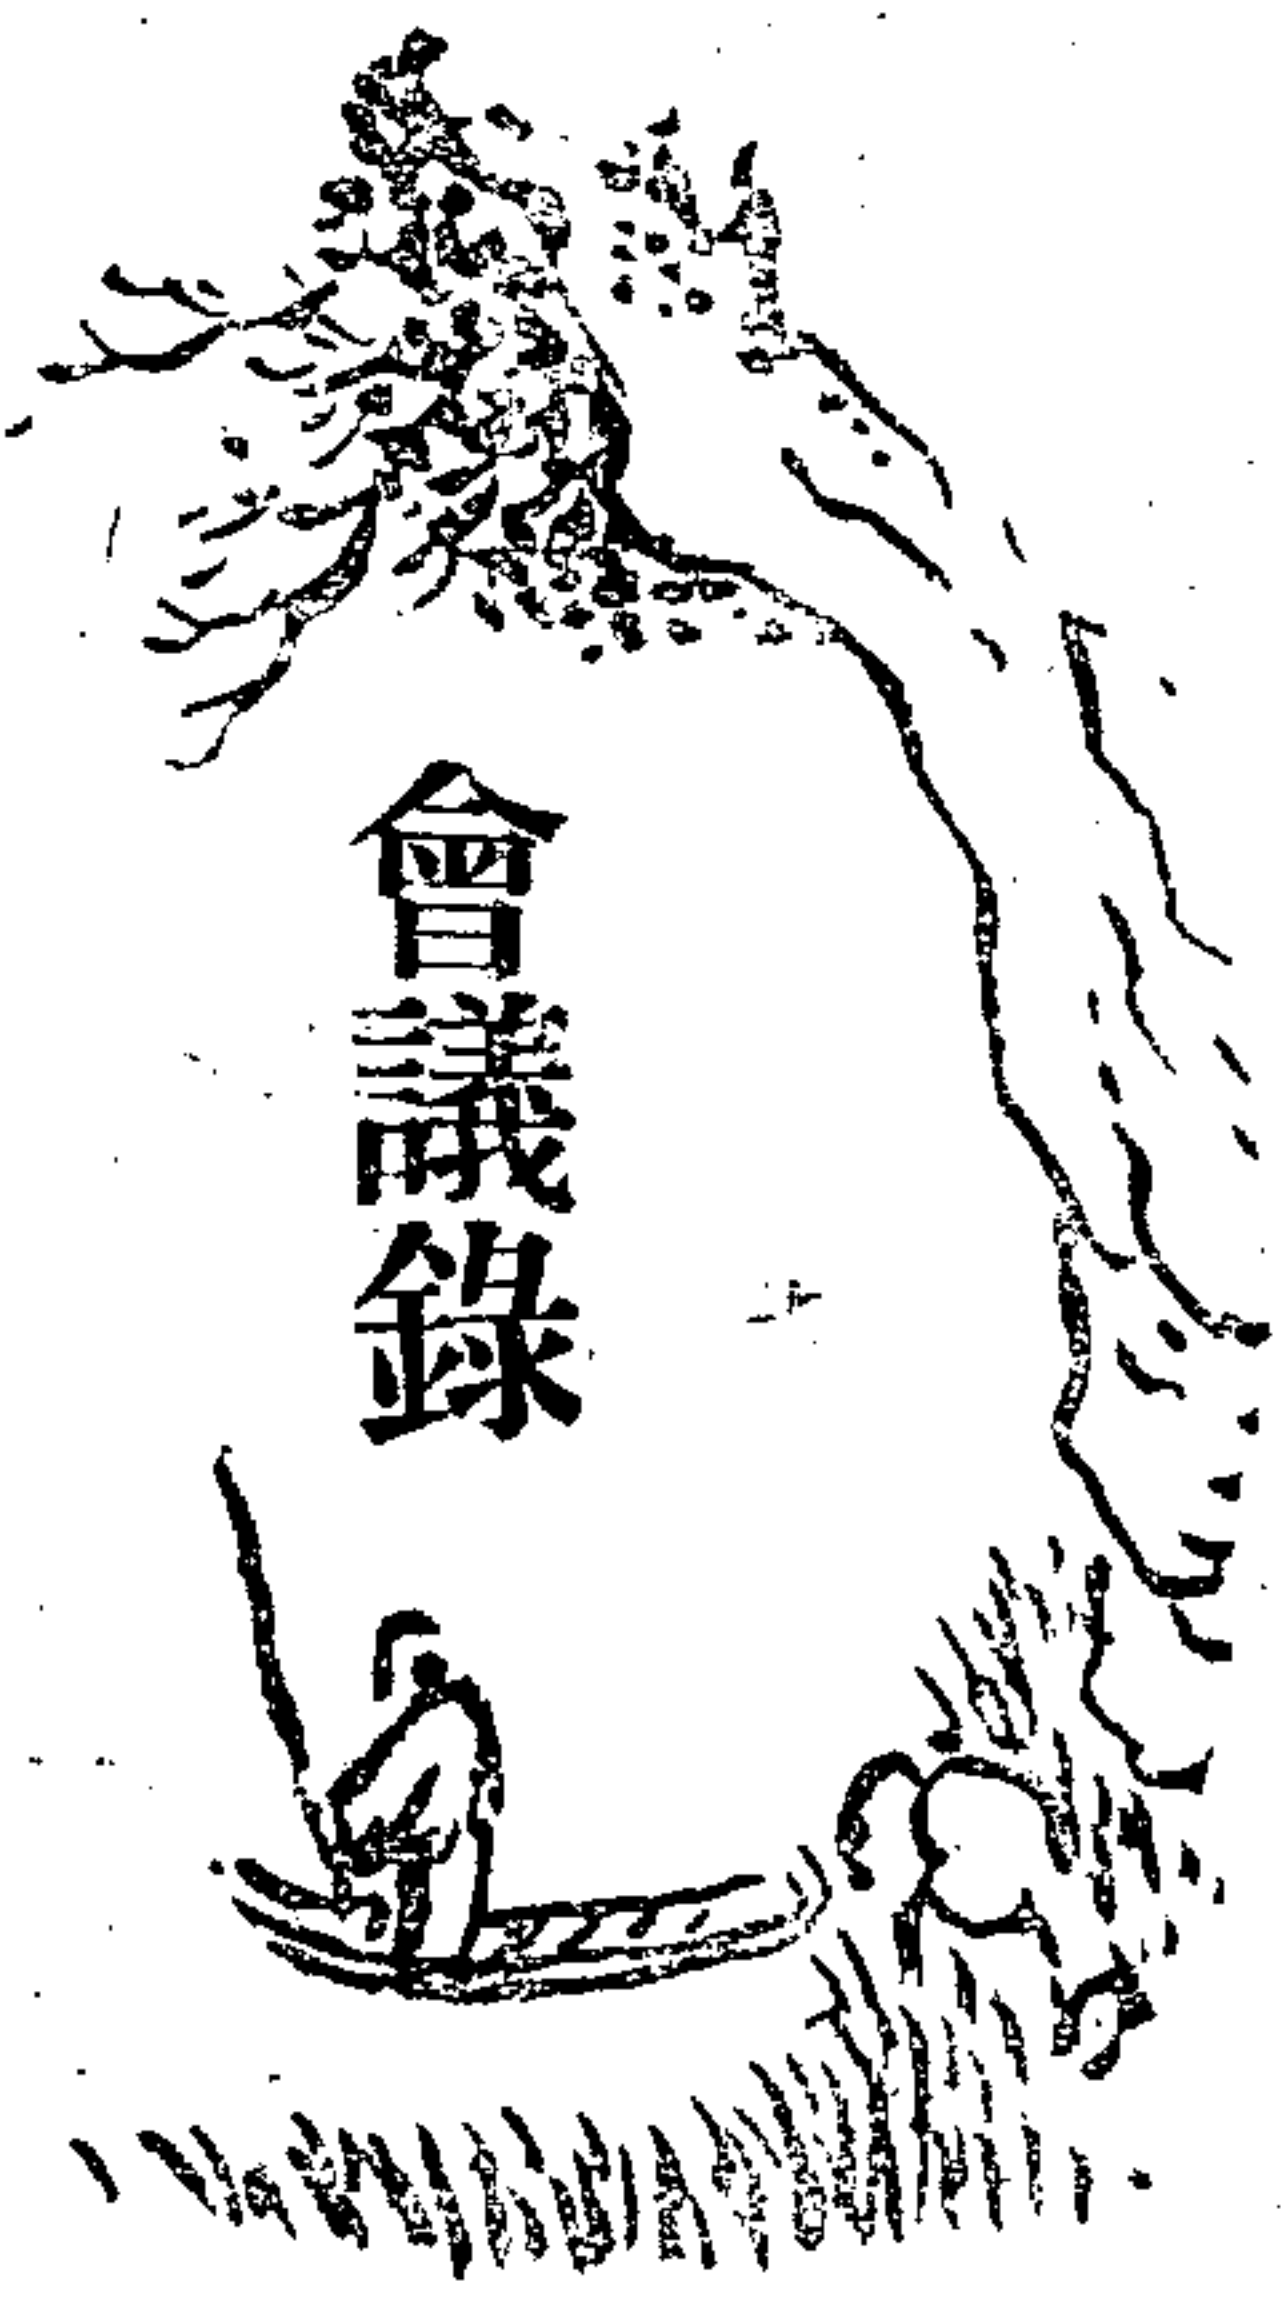 會議錄